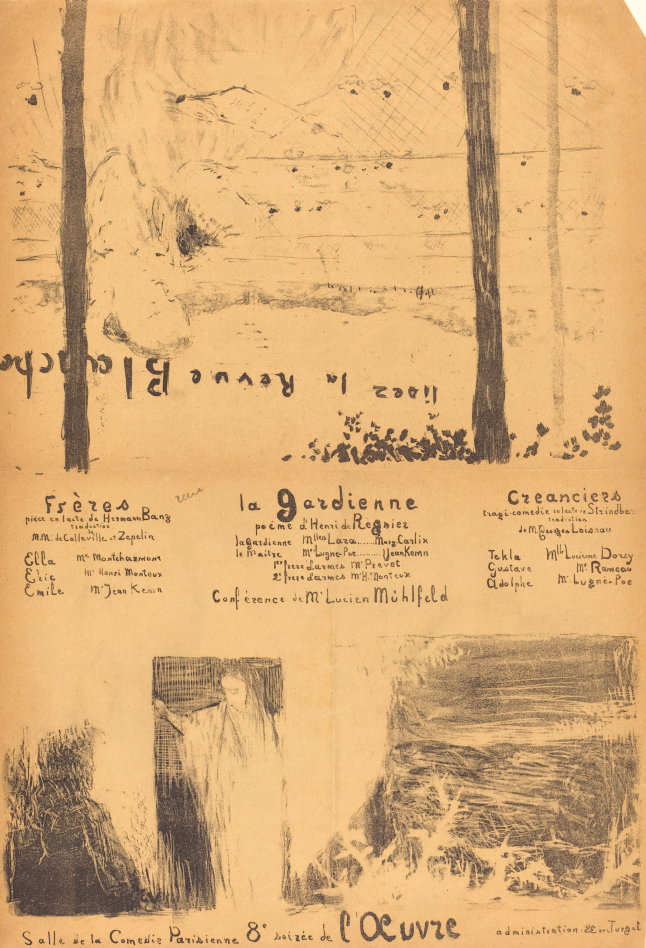 lisez la Revue Blanche
Frères
pièce en 1 acte de Hermann Bang
traduction
de
M.M. de Colleville et Zepelin
Ella Me Montcharmont
Eric Mr Henri Montoux
Emile Mr Jean Kemm
la gardienne
poéme d'Henri de Regnier
la gardienne Mlles Lara......Mary Carlix
le maitre Mr Lugné-Poe........Jean Kemn
1er frere d'armes Mr Prevet
2e frere d'armes Mr H. Monteux
Conférence de Mr Lucien Mühlfeld
Creanciers
tragi-comedie en 1 acte de Strindber
traduction
de M. Georges Loiseau
Tekla Mlle Lucienne Dorsy
Gustave Mr Rameau
Adolphe Mr Lugné-Poe
Salle de la Comedie Parisienne 8e soirée de l'Œuvre
administration: 22 rue Turgot